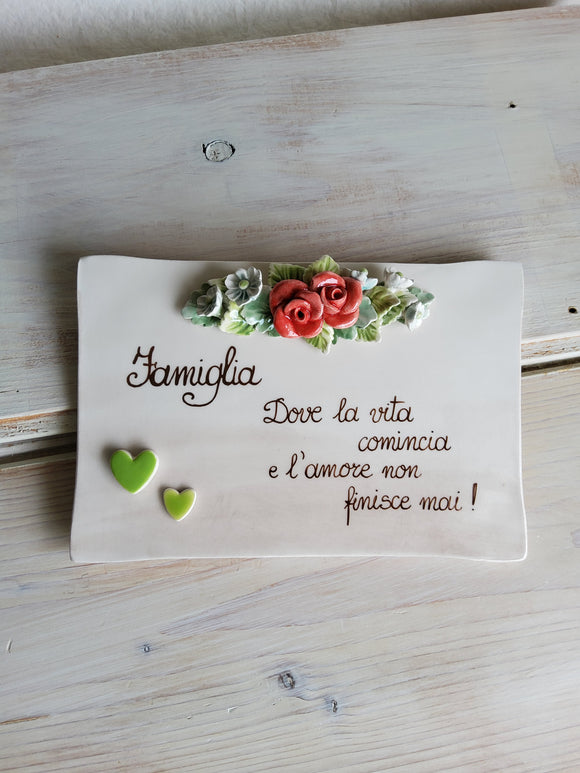 Famiglia
Dove la vita
comincia
e l'amore non
finisce mai!